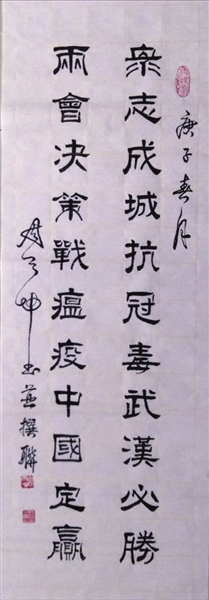 庚子春月
衆志成城抗冠毒武漢必勝
兩會决策戰瘟疫中國定贏
書並撰聯